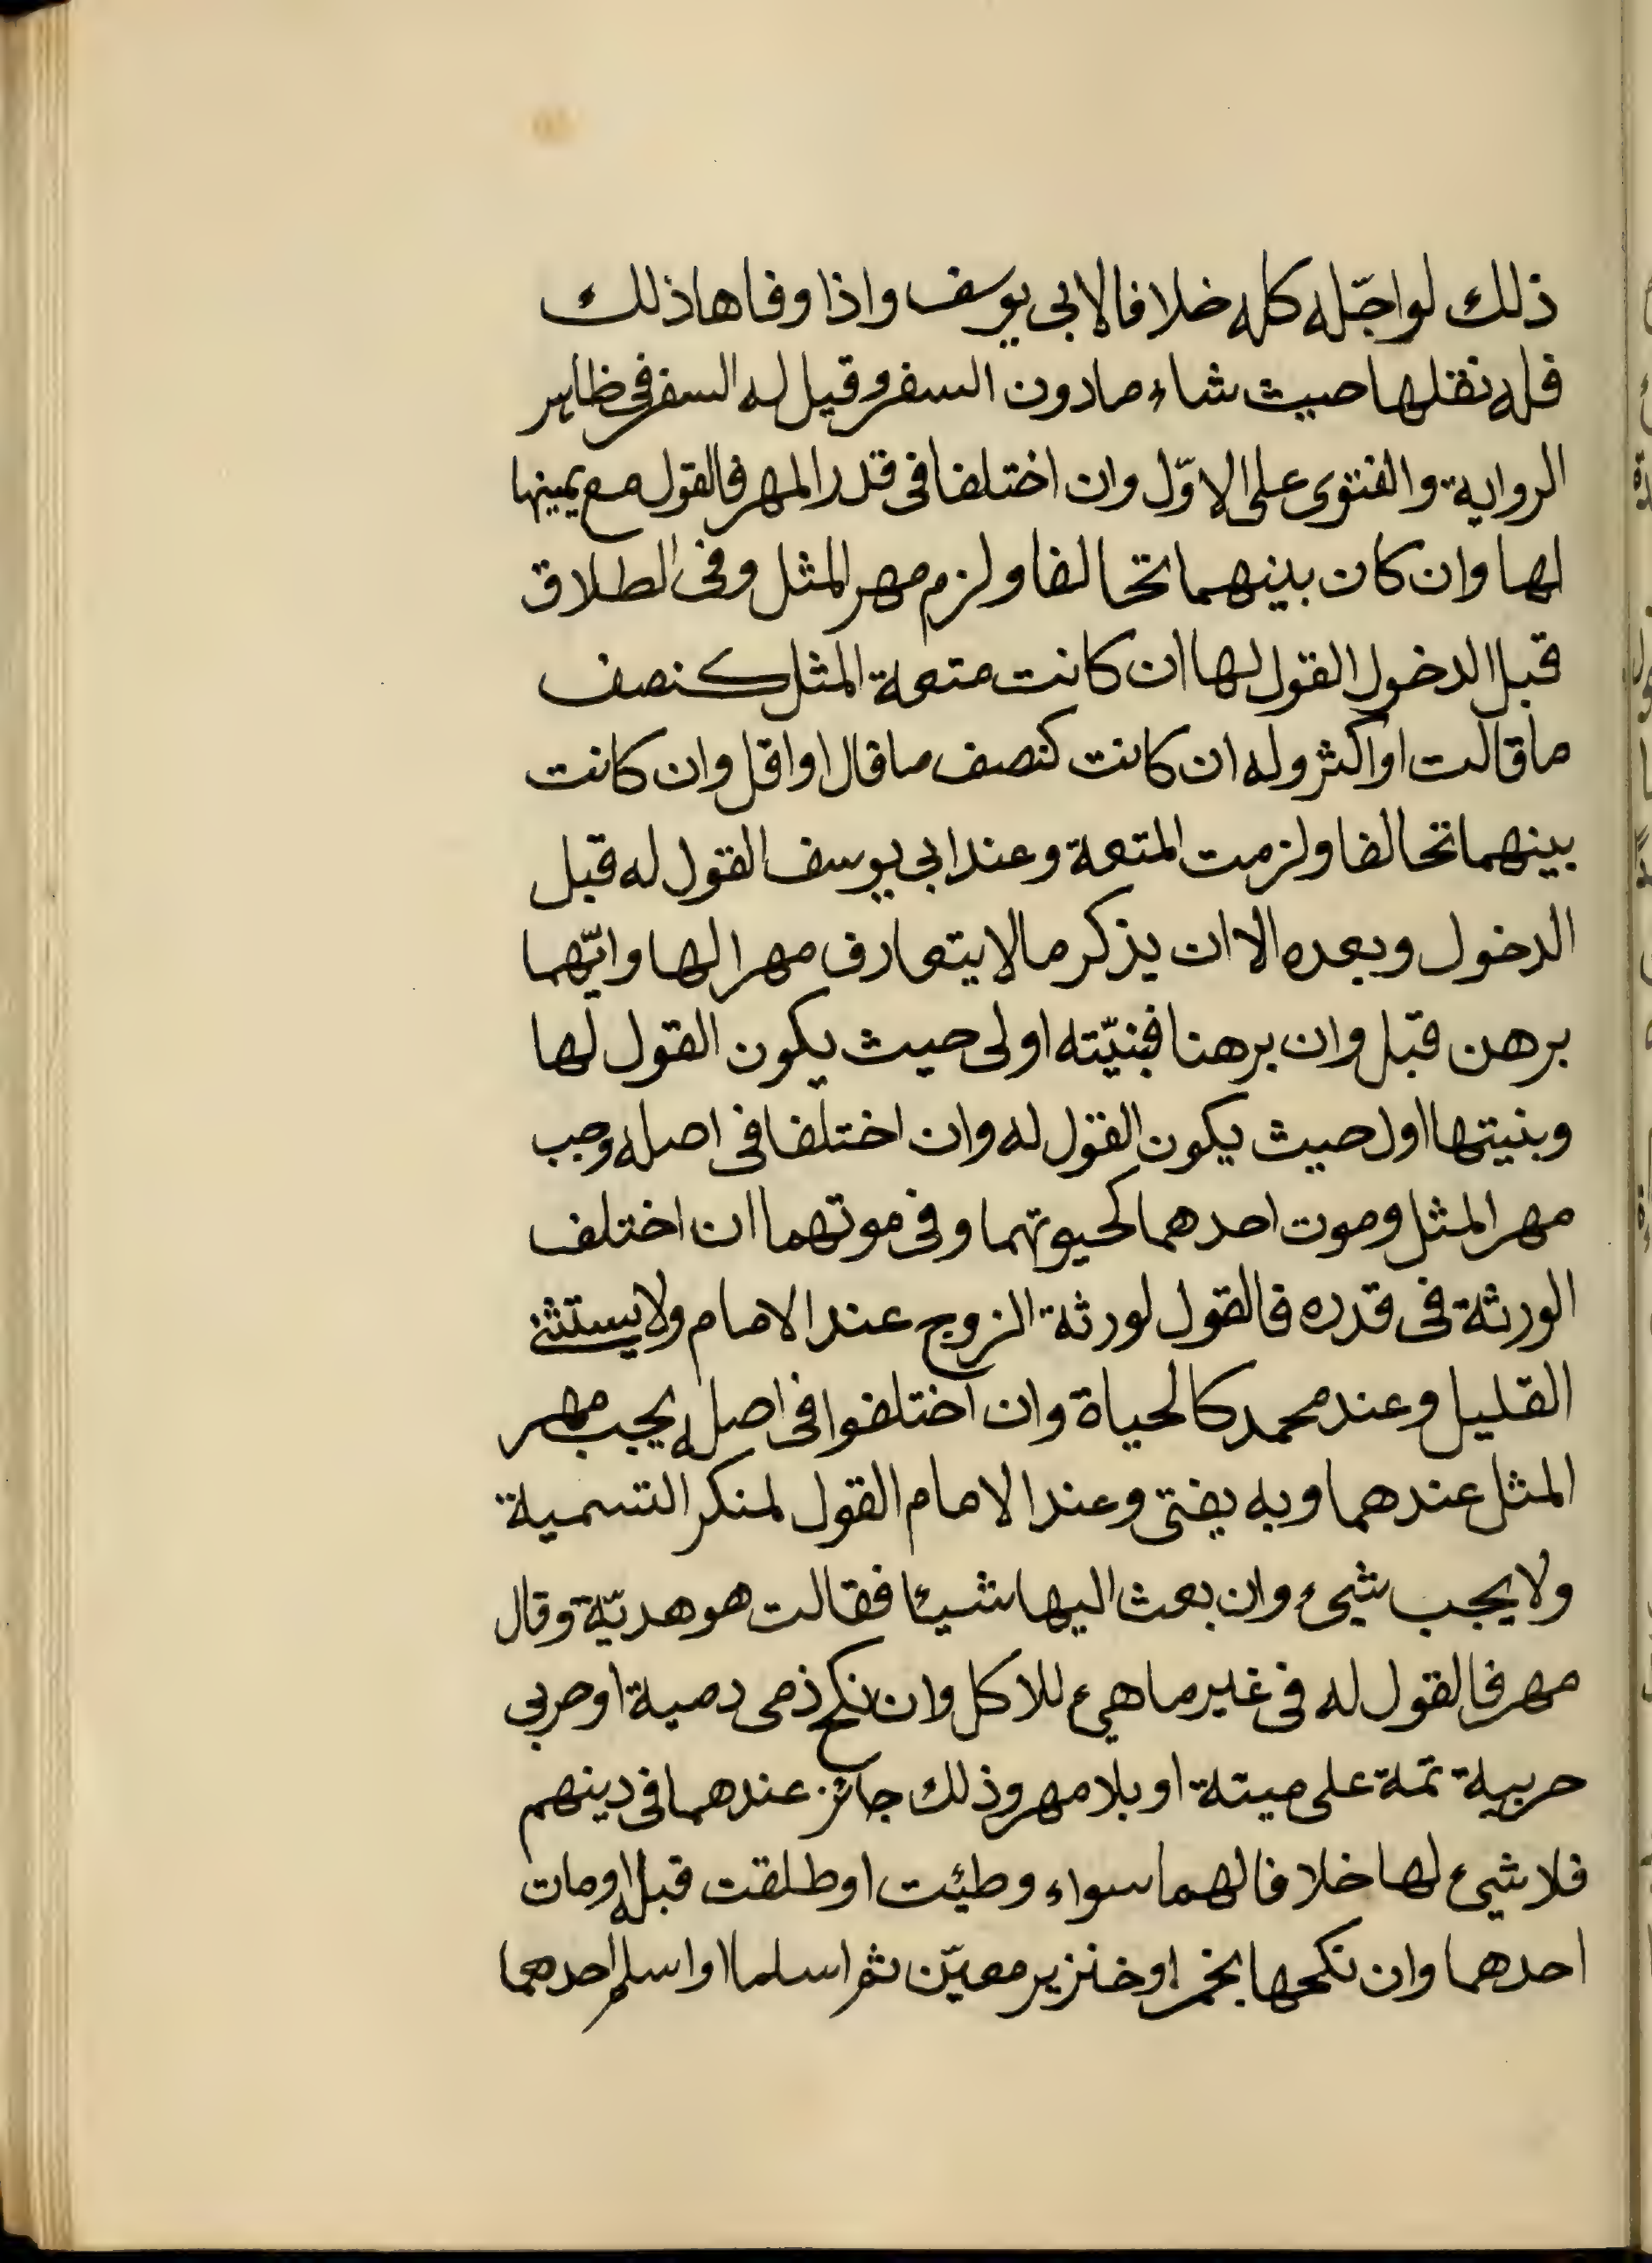 ذلك لو اجّله كله خلافا لابى يوسف واذا وفاها ذلك
فله نقلها حيث شاء ما دون السفر وقيل له السفر فى ظاهر
الرواية والفتوى على الاوّل وان اختلفا فى قدر المهر فالقول مع يمينها
لها وان كان بينهما تحالفا ولزم مهر المثل وفى الطلاق
قبل الدخول القول لها ان كانت متعة المثل كنصف
ما قالت او اكثر وله ان كانت كنصف ما قال او اقل وان كانت
بينهما تحالفا ولزمت المتعة وعند ابى يوسف القول له قبل
الدخول وبعده الا ان يذكر ما لا يتعارف مهرا لها وايّهما
برهن قبل وان برهنا فبنيّته اولى حيث يكون القول لها
وبنيتها اول حيث يكون القول له وان اختلفا فى اصله وجب
مهر المثل وموت احدهما كحيوتهما وفى موتهما ان اختلف
الورثة فى قدره فالقول لورثة الزوج عند الامام ولا يستثنى
القليل وعند محمد كالحياة وان اختلفوا فى اصله يجب مهر
المثل عندهما وبه يفتى وعند الامام القول لمنكر التسمية
ولا يجب شيئ وان بعث اليها شيئا فقالت هو هديّة وقال
مهر فالقول له فى غير ما هيء للاكل وان نكح ذمى دمية او حربى
حربية ثمة على ميتة او بلا مهر وذلك جائز عندهما فى دينهم
فلا شيئ لها خلافا لهما سواء وطئت او طلقت قبله او مات
احدهما وان نكحها بخمر او خنزير معيّن ثم اسلما او اسلم احدهما